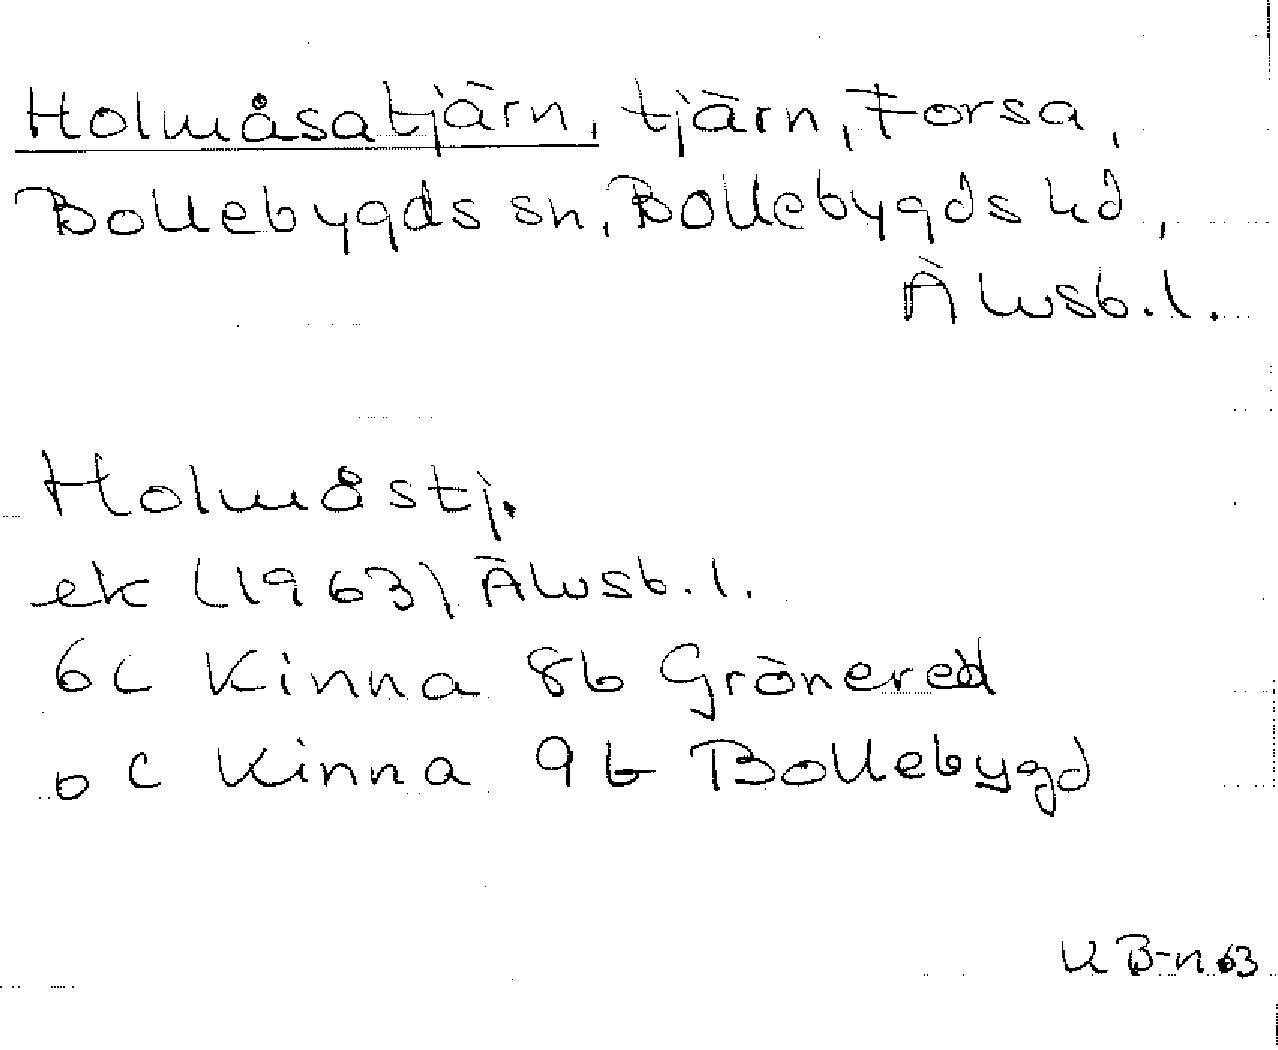 Holmåsatjärn, tjärn, Forsa,
Bollebygds sn, Bollebygds hd,
Älvsb. l.
Holmåstj.
ek (1963) Älvsb. l.
6C Kinna 8b Grönered
6C Kinna 9b Bollebygd
K B-n 63